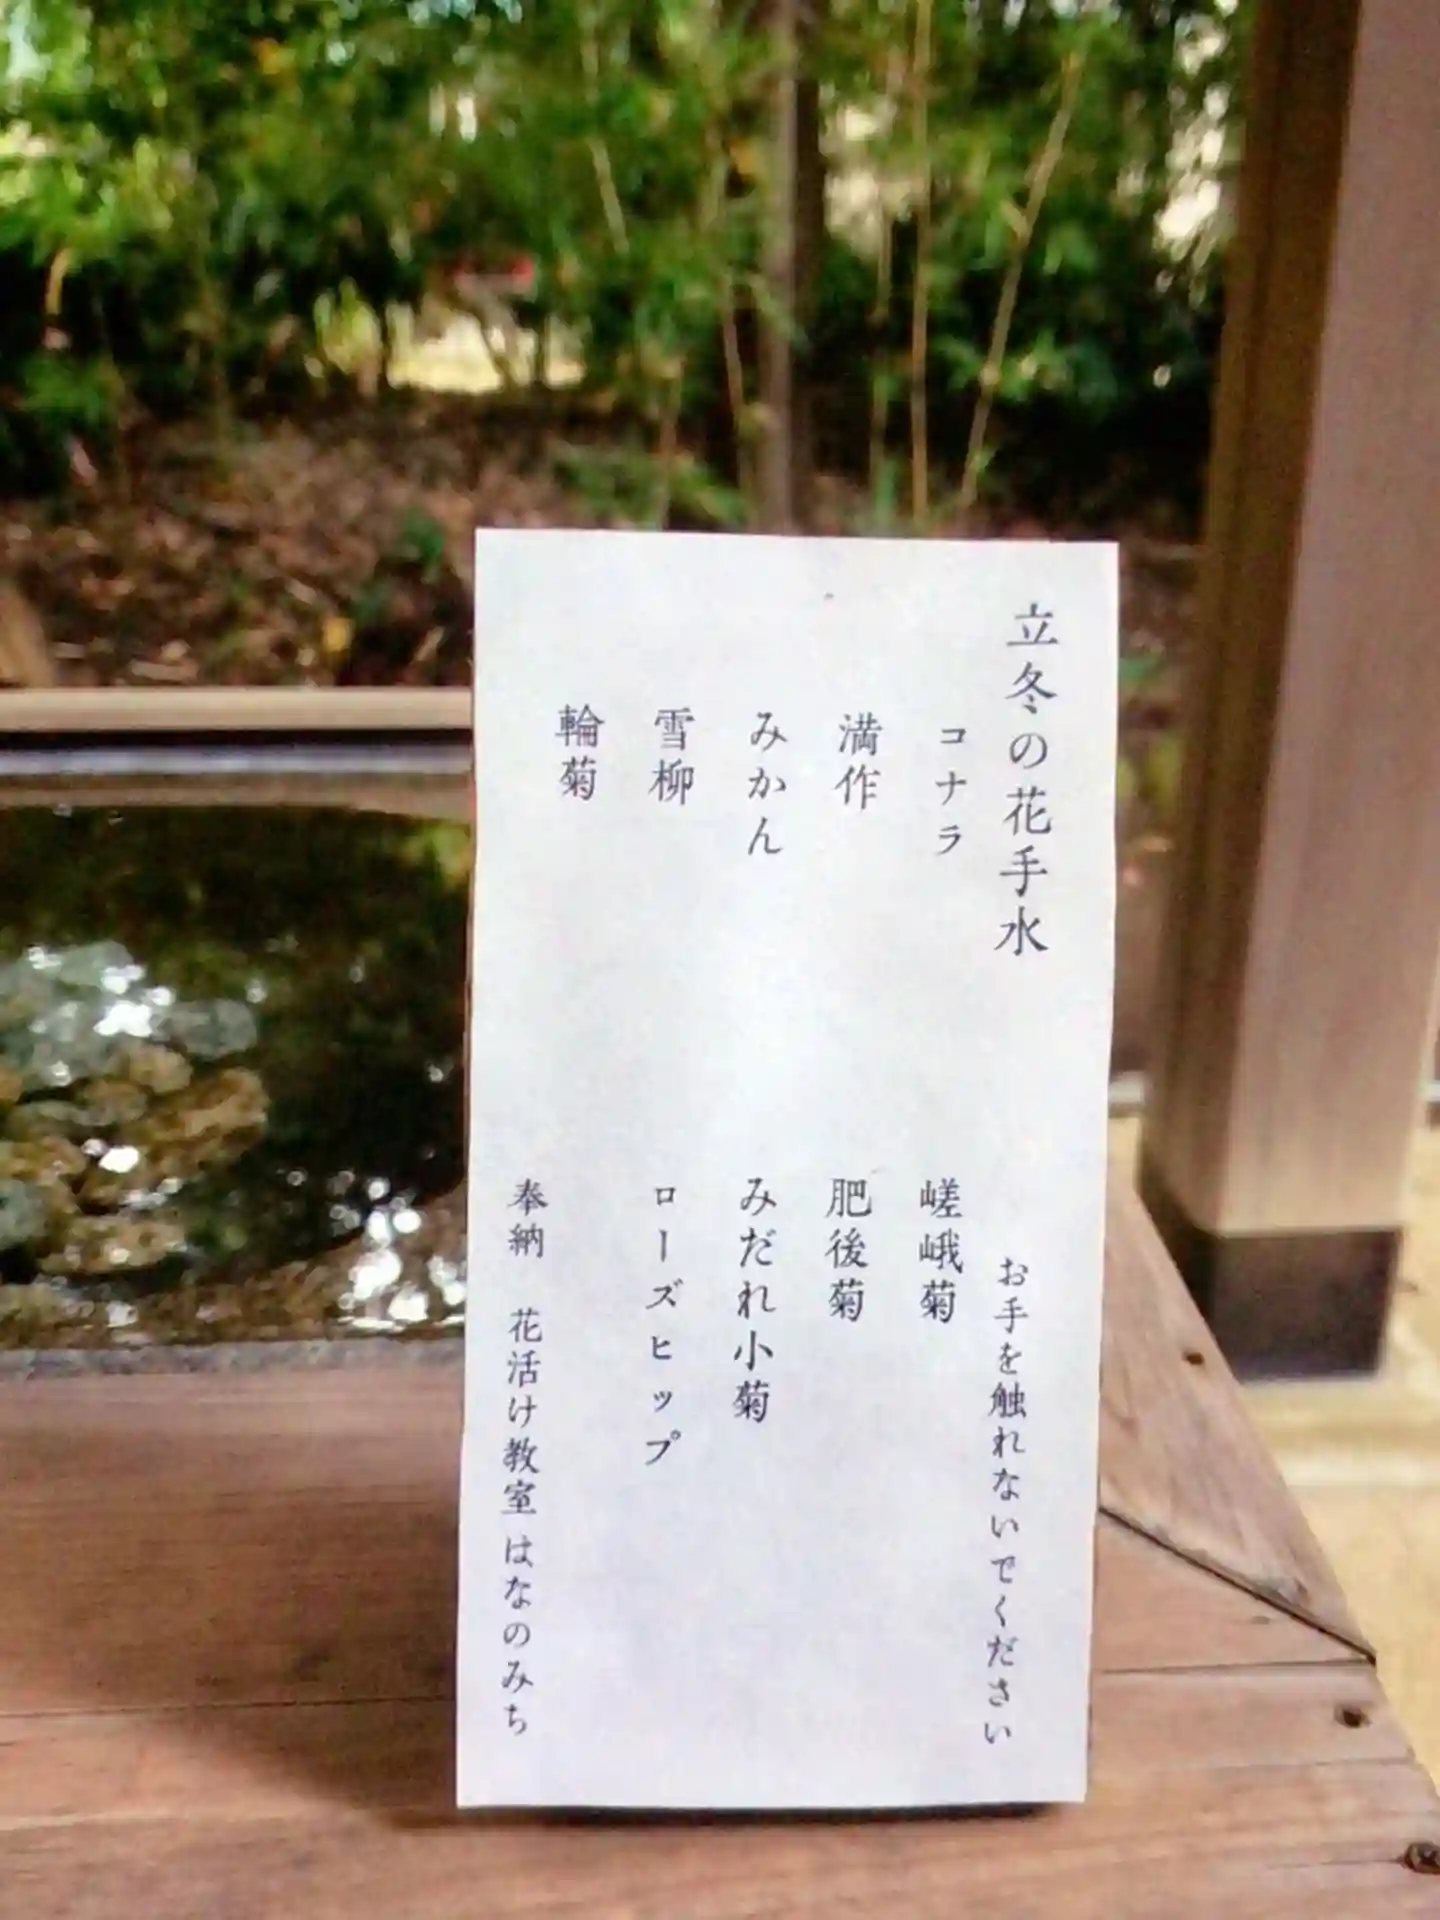 立冬の花手水
お手を触れないでください
コナラ
満作
みかん
雪柳
輪菊
嵯峨菊
肥後菊
みだれ小菊
ローズヒップ
奉納　花活け教室 はなのみち